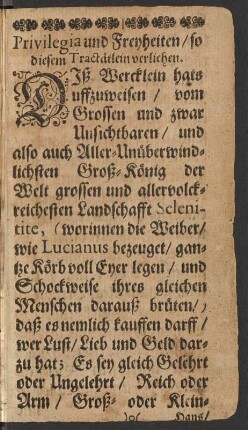 Privilegia und Freyheiten / so
diesem Tractätlein verliehen.
DIß. Wercklein hats
uffzuweisen / vom
Grossen und zwar
Unsichtbaren / und
also auch Aller-Unüberwind-
lichsten Groß-König der
Welt grossen und allervolck-
reichesten Landschafft Seleni-
tite, (worinnen die Weiber/
wie Lucianus bezeuget / gan-
tze Körb voll Eyer legen / und
Schockweise ihres gleichen
Menschen darauß brüten/)
daß es nemlich kauffen darff /
wer Lust / Lieb und Geld dar-
zu hat; Es sey gleich Gelehrt
oder Ungelehrt / Reich oder
Arm / Groß- oder Klein-
)o( Hans/